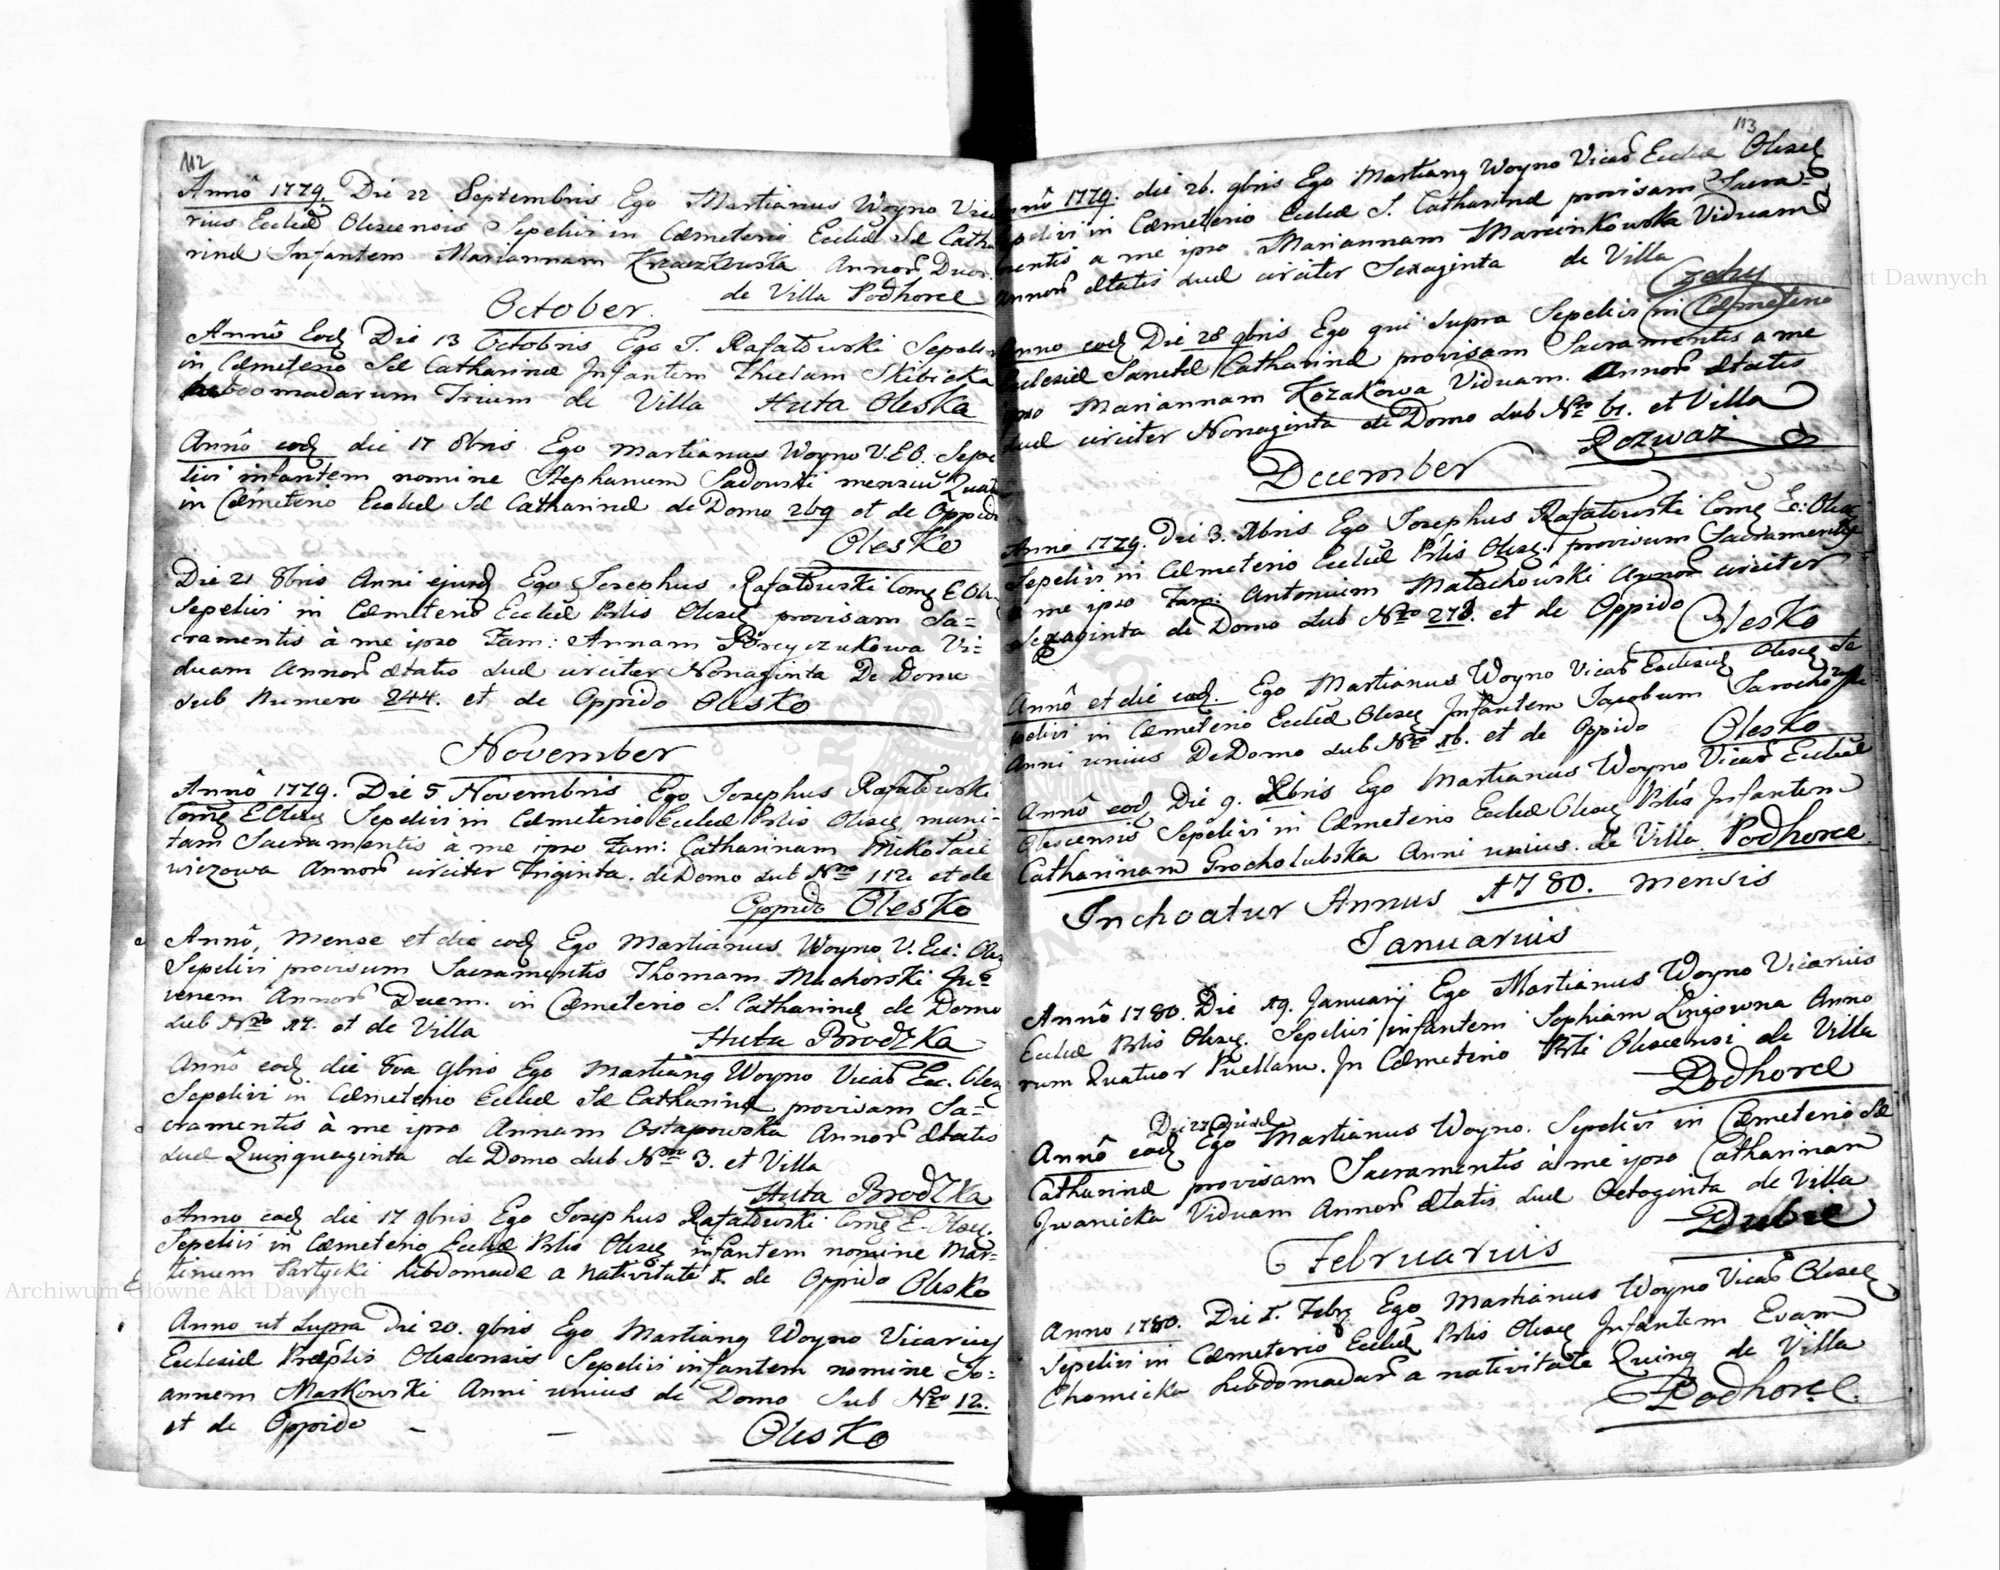 112
Annô 1779. Die 22 Septembris Ego Martianus Woyno Vica
rius Eccliæ Olescensis Sepelivi in Cæmeterio Eccliæ Sæ Catha
rinæ Infantem Mariannam Kraczkowska Annor Duor.
de Villa Podhorce
October.
Annô Eod Die 13 Octobris Ego J. Rafałowski Sepeli
in Cæmeterio Sæ Catharinæ Infantem Theclam Skibicka
hebdomadarum Trium de Villa Huta Oleska
Annô eod die 17 8bris Ego Martianus Woyno V.E.O. Sepe
livi infantem nomine Stephanum Sadowski mensiu Quat
in Cæmeterio Eccliæ Sæ Catharinæ de Domo 269 et de Oppido
Olesko
Die 21 8bris Anni ejusd Ego Josephus Rafałowski Com E Oles
Sepelivi in Cæmeterio Eccliæ Prlis Olesc provisam Sa=
cramentis à me ipso Fam: Annam Vi=
duam Annor ætatis suæ circiter Nonaginta De Domo
sub Numero 244. et de Oppido Olesko
November
Annô 1779. Die 5 Novembris Ego Josephus Rafałowski
Com E Olesc Sepelivi in Cæmeterio Eccliæ Prlis Olesc muni=
tam Sacramentis à me ipso Fam: Catharinam Mikołaie
wiczowa Annor circiter Triginta. de Domo sub Nro 112. et de
Oppido Olesko
Annô, Mense et die eod Ego Martianus Woyno V. Ecc: Oles
Sepelivi provisum Sacramentis Thomam Muchorski Ju=
venem Annor Decem. in Cæmeterio S. Catharinæ de Domo
sub Nro 17. et de Villa Huta Brodzka
Annô eod die 8va 9bris Ego Martiang Woyno Vicar Ecc. Olesc
Sepelivi in Cæmeterio Eccliæ Sæ Catharinæ provisam Sa=
cramentis à me ipso Annam Ostapowska Annor ætatis
suæ Quinquaginta de Domo sub Nro 3. et Villa
Huta Brodzka
Anno eod die 17 9bris Ego Josephus Rafałowski Com E. Olesc.
Sepelivi in Cæmeterio Eccliæ Prlis Olesc infantem nomine Mar=
tinum Sartycki hebdomadæ a Nativitate I. de Oppido Olesko
Anno ut Supra Die 20. 9bris Ego Martiang Woyno Vicarius
Ecclesiæ Præptlis Olescensis Sepelivi infantem nomine Jo=
annem Markowski Anni unius de Domo Sub Nro 12.
et de Oppido – – Olesko
113
Annô 1779. die 26. 9bris Ego Martiang Woyno Vicar Eccliæ Olesc
Sepelivi in Cæmeterio Eccliæ S. Catharinæ provisam Sacra=
mentis a me ipso Mariannam Marcinkowska Viduam
Annor ætatis suæ circiter Sexaginta de Villa
Czechy
Anno eod Die 28 9bris Ego qui supra Sepelivi in Cæmeterio
Ecclesiæ Sanctæ Catharinæ provisam Sacramentis a me
ipso Mariannam Kozakowa Viduam. Annor ætatis
suæ circiter Nonaginta de Domo sub Nro 61. et Villa
Rozwaz
December
Anno 1779. Die 3. Xbris Ego Josephus Rafałowski Com Ec: Olesc
Sepelivi in Cæmeterio Eccliæ Prlis Olesc. provisum Sacramentis
a me ipso Fam: Antonium Małachowski Annor circiter
Sexaginta de Domo sub Nro 278. et de Oppido Olesko
Annô et die eod. Ego Martianus Woyno Vicar Ecclesiæ Olesc Se
pelivi in Cæmeterio Eccliæ Olesc Infantem Jacobum
Anni unius De Domo sub Nro 16. et de Oppido Olesko
Annô eod Die 9. Xbris Ego Martianus Woyno Vicar Eccliæ
Olescensis Sepelivi in Cæmeterio Eccliæ Olesc Prlis Infantem
Catharinam Grocholubska Anni unius. de Villa Podhorce
Inchoatur Annus 1780. mensis
Januarius
Annô 1780. Die 19. Januarij Ego Martianus Woyno Vicarius
Eccliæ Prlis Olesc. Sepelivi infantem Sophiam Lingowna Anno
rum Quatuor Puellam. In Cæmeterio Prli Olescensi de Villa
Podhorce
Die 27 Ejusd
Annô eod Ego Martianus Woyno. Sepelivi in Cæmeterio Sæ
Catharinæ provisam Sacramentis à me ipso Catharinam
Iwanicka Viduam Annor ætatis suæ Octoginta de Villa
Dubie
Februarius
Anno 1780. Die I. Febr Ego Martianus Woyno Vicar Olesc
Sepelivi in Cæmeterio Eccliæ Prlis Olesc Infantem Evam
Chomicka hebdomadar a nativitate Quinq de Villa
Podhorce.
Archiwum Główne Akt Dawnych
Archiwum Główne Akt Dawnych